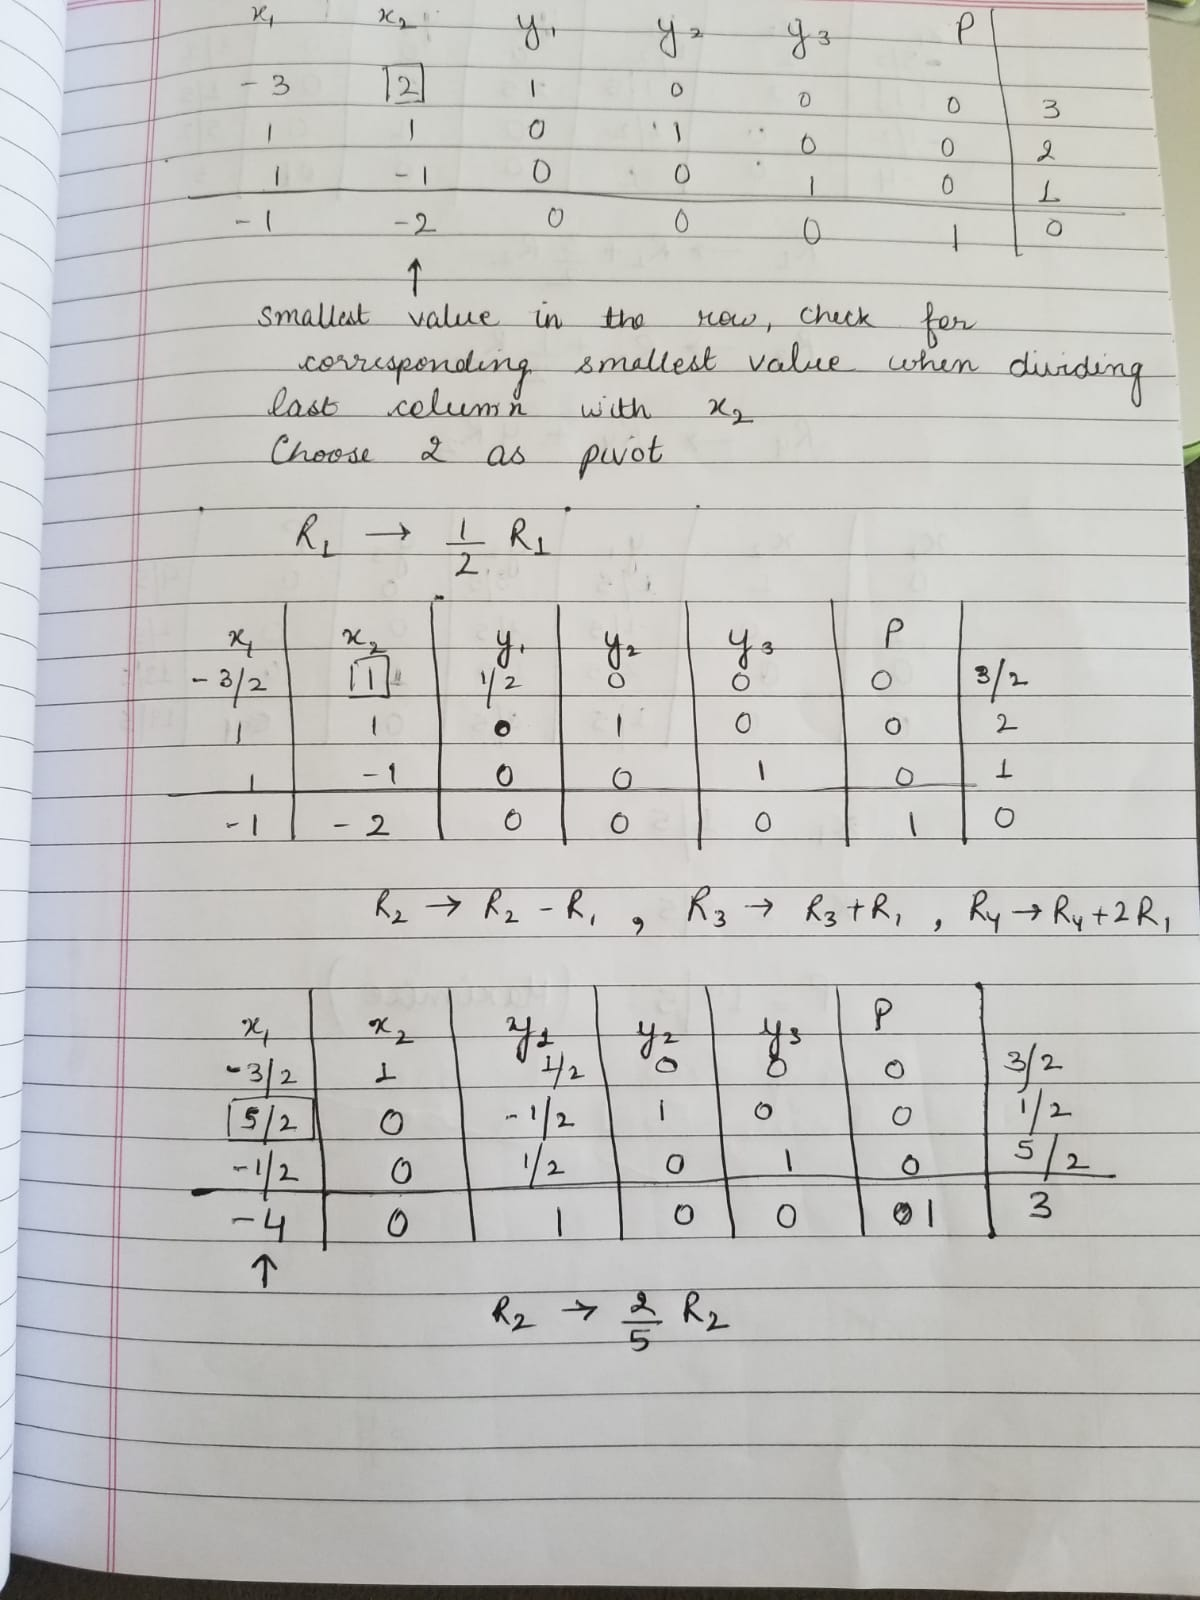 x₁ x₂ y₁ y₂ y₃ P
-3 2 1 0 0 0 3
1 1 0 1 0 0 2
1 -1 0 0 1 0 1
-1 -2 0 0 0 1 0
↑
Smallest value in the row, check for
corresponding smallest value when dividing
last column with x₂
Choose 2 as pivot
R₁ → 1/2 R₁
x₁ x₂ y₁ y₂ y₃ P
-3/2 1 1/2 0 0 0 3/2
1 1 0 1 0 0 2
1 -1 0 0 1 0 1
-1 -2 0 0 0 1 0
R₂ → R₂ - R₁ , R₃ → R₃ + R₁ , R₄ → R₄ + 2R₁
x₁ x₂ y₁ y₂ y₃ P
-3/2 1 1/2 0 0 0 3/2
5/2 0 -1/2 1 0 0 1/2
-1/2 0 1/2 0 1 0 5/2
-4 0 1 0 0 1 3
↑
R₂ → 2/5 R₂